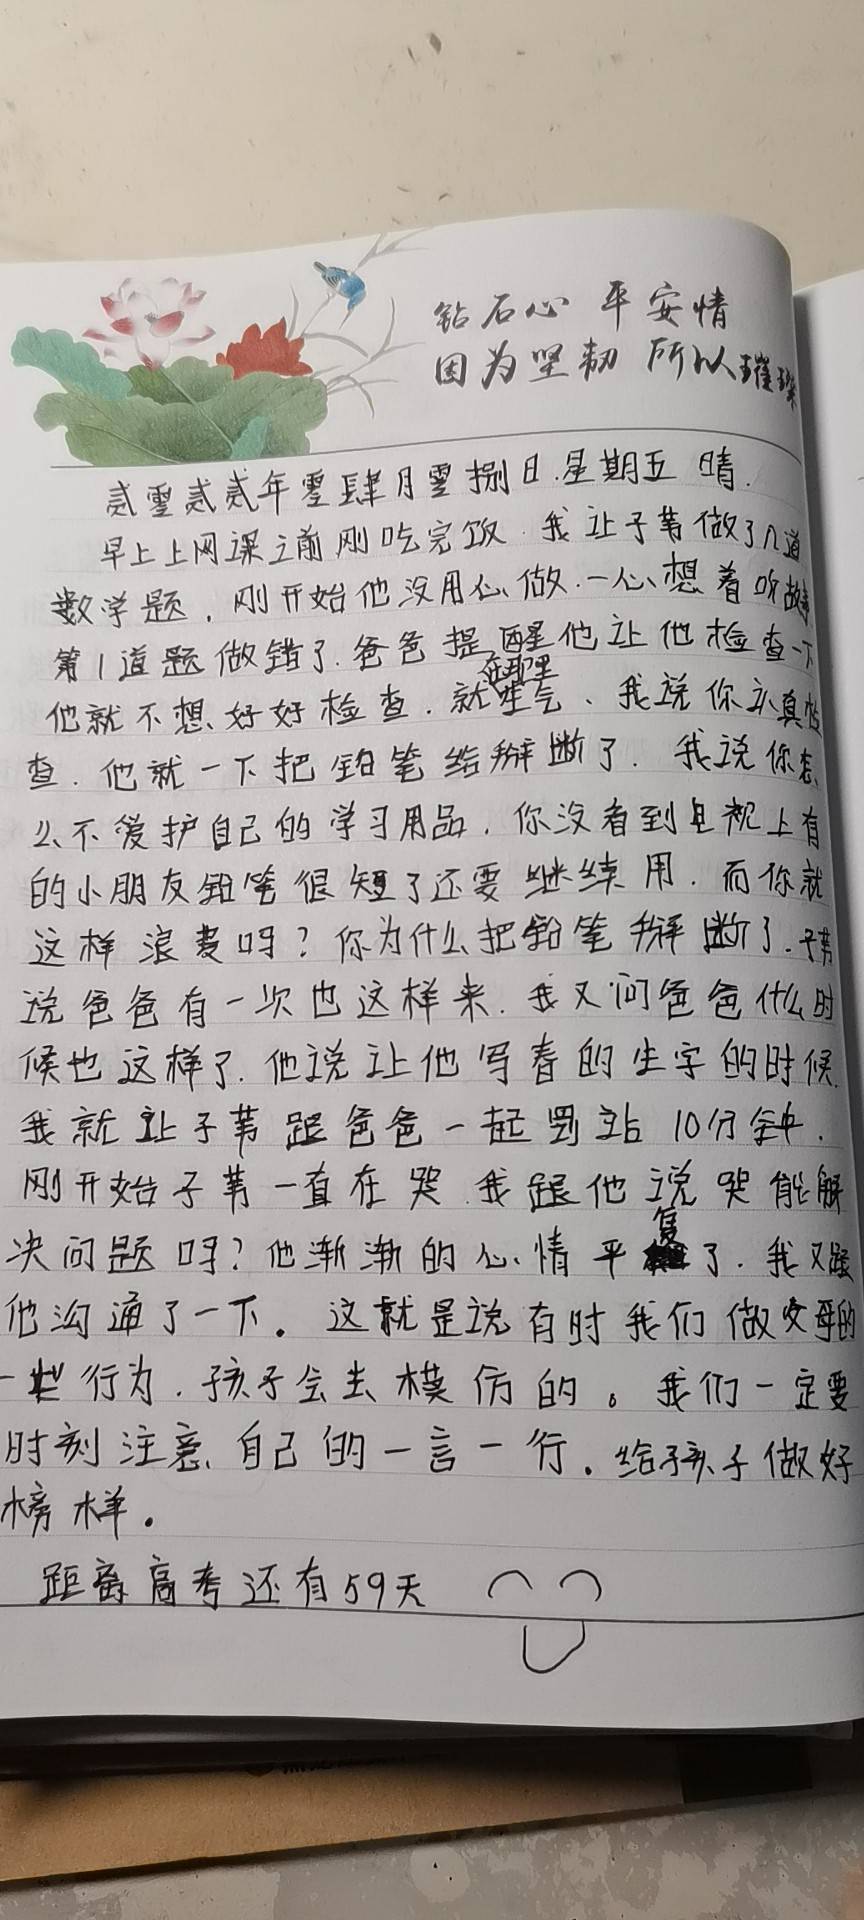 钻石心 平安情
因为坚韧 所以璀璨
贰零贰贰年零肆月零捌日.星期五 晴.
早上上网课之前刚吃完饭.我让子苇做了几道
数学题,刚开始他没用心做.一心想着听故事
第1道题做错了.爸爸提醒他让他检查一下
他就不想好好检查.就在那里生气、我说你认真检
查.他就一下把铅笔给掰断了.我说你怎
么不爱护自己的学习用品.你没看到电视上有
的小朋友铅笔很短了还要继续用.而你就
这样浪费吗?你为什么把铅笔掰断了.子苇
说爸爸有一次也这样来.我又问爸爸什么时
候也这样了.他说让他写春的生字的时候.
我就让子苇跟爸爸一起罚站10分钟.
刚开始子苇一直在哭.我跟他说哭能解
决问题吗?他渐渐的心情平复了.我又跟
他沟通了一下。这就是说有时我们做父母的
一些行为.孩子会去模仿的。我们一定要
时刻注意自己的一言一行.给孩子做好
榜样.
距离高考还有59天